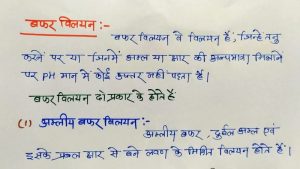 बफर विलयन :-
बफर विलयन वे विलयन हैं, जिन्हे तनु
करने पर या जिनमें अम्ल या क्षार की अल्पमात्रा मिलाने
पर pH मान में कोई अन्तर नहीं पड़ता है।
बफर विलयन दो प्रकार के होते हैं
(1) अम्लीय बफर विलयन :-
अम्लीय बफर, दुर्बल अम्ल एवं
इसके प्रबल क्षार से बने लवण के मिश्रित विलयन होते हैं।